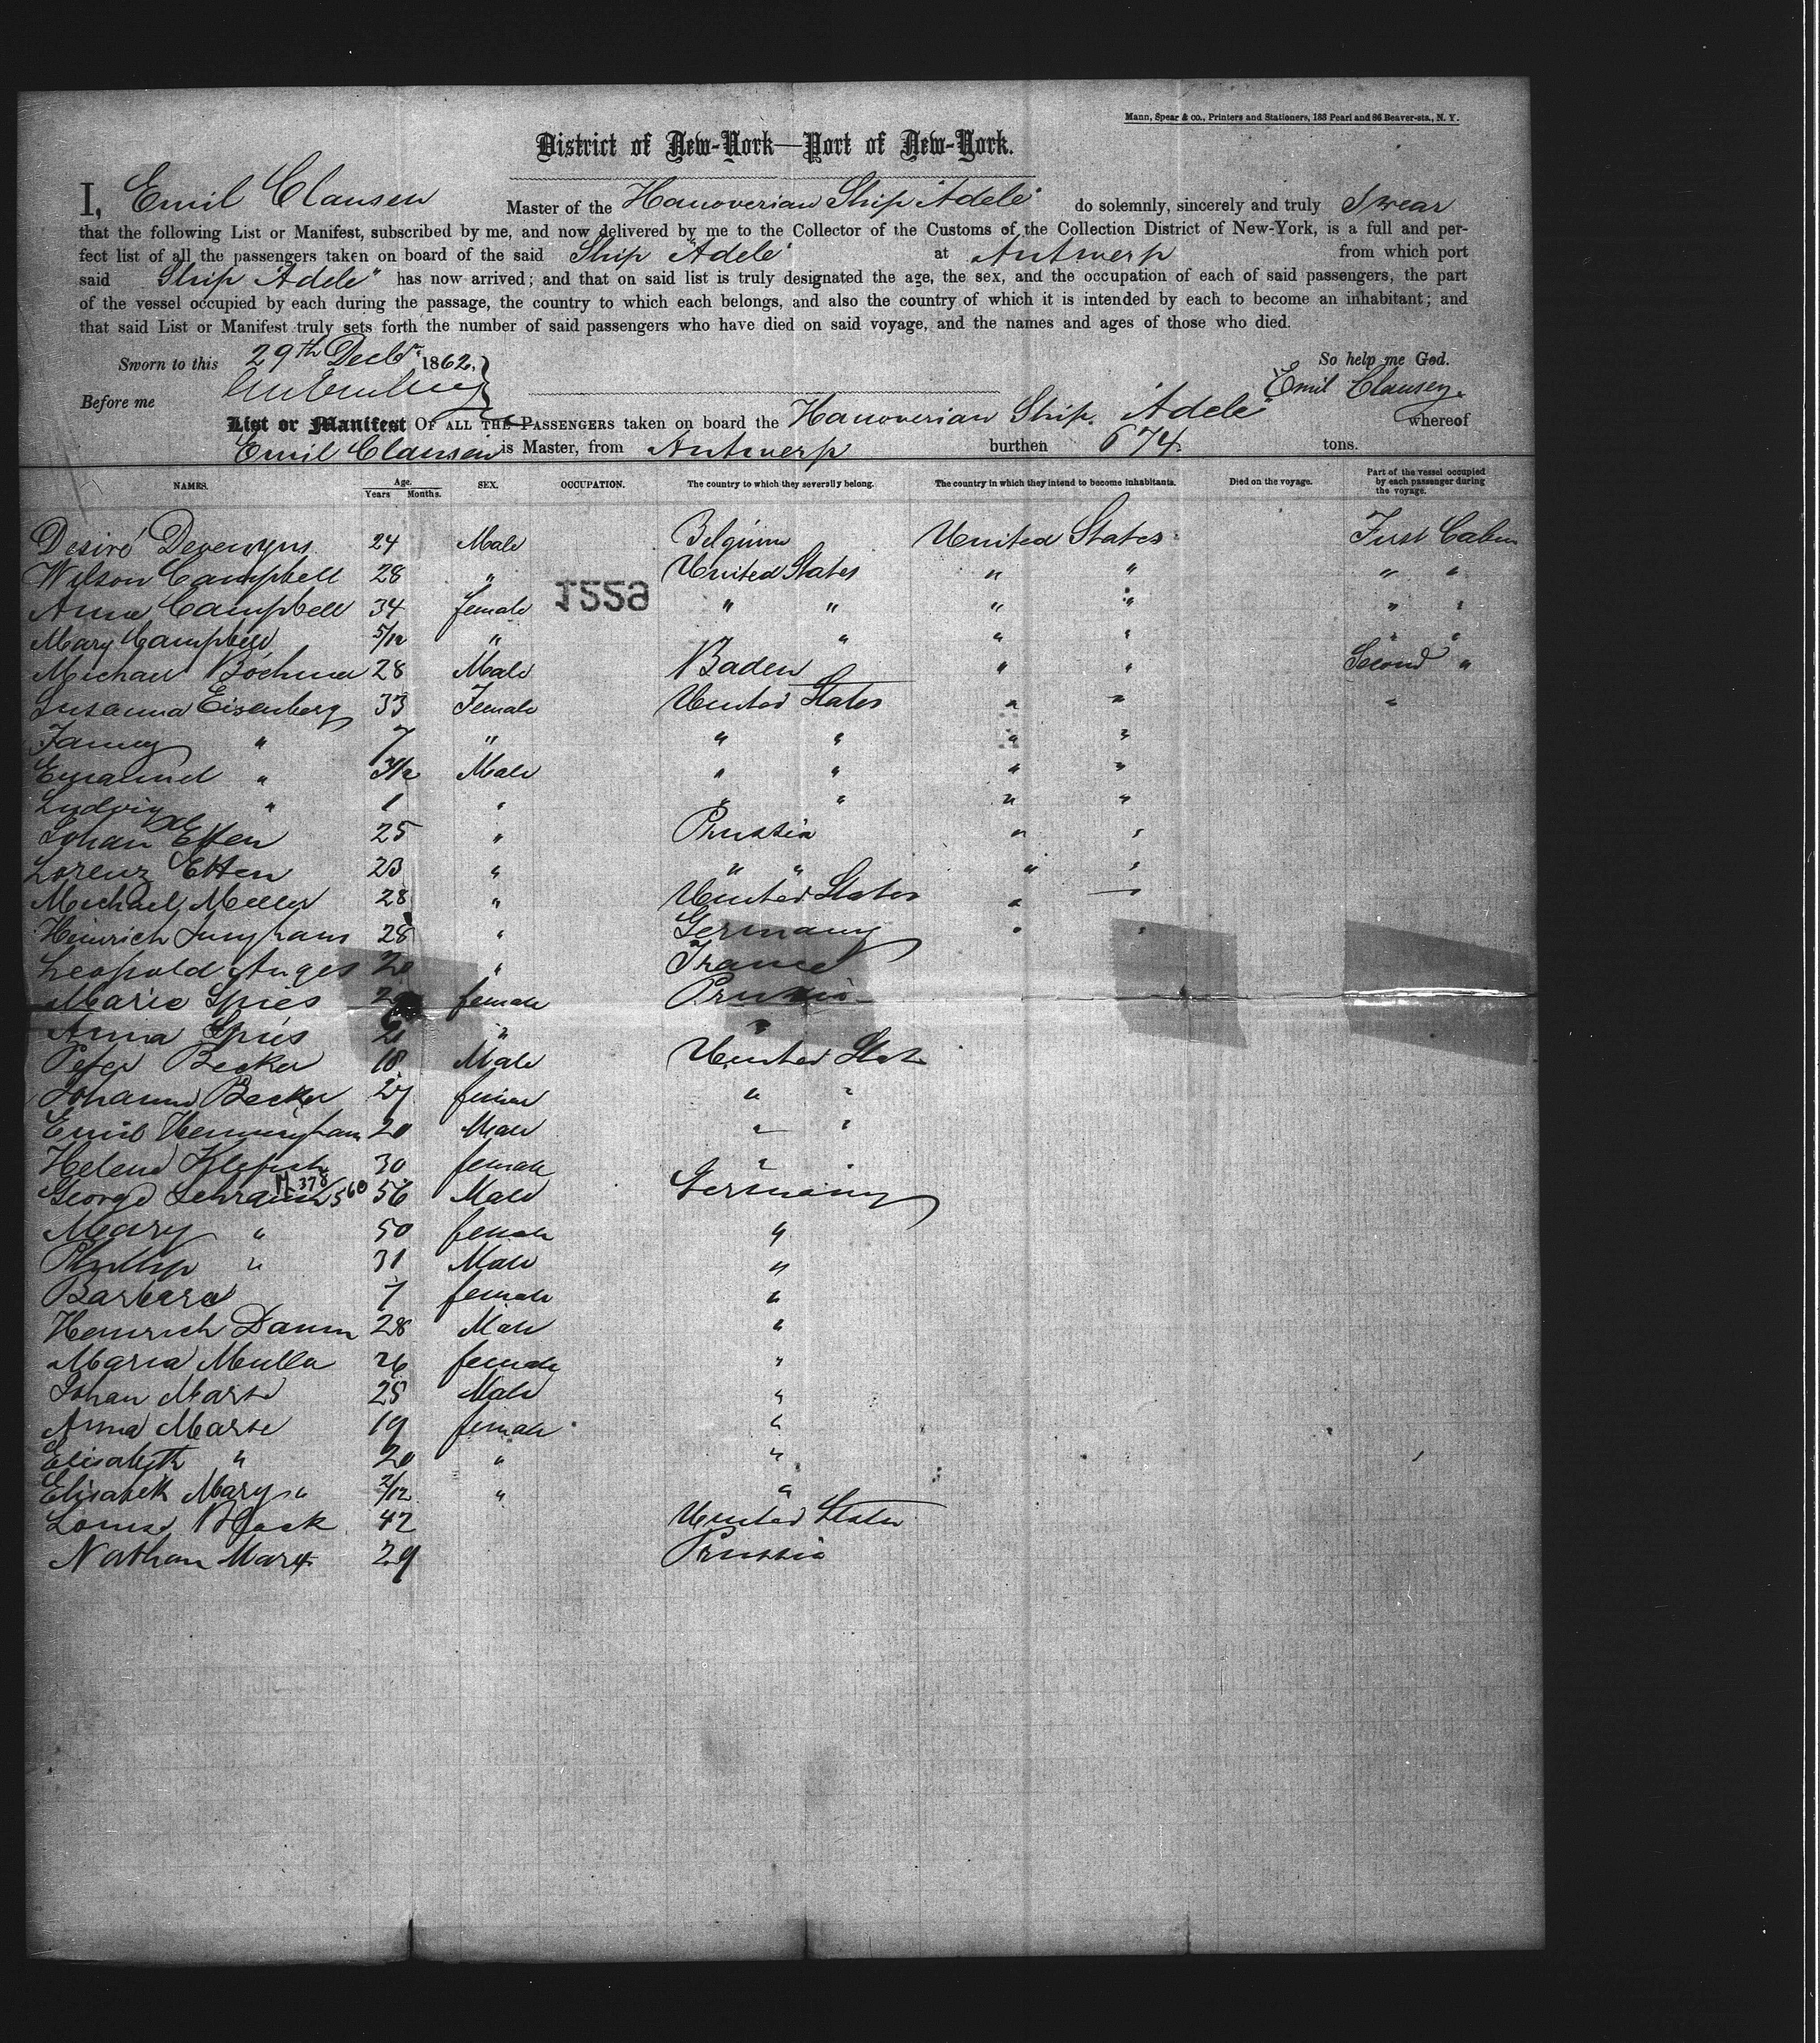 Mann, Spear & co., Printers and Stationers, 133 Pearl and 86 Beaver-sts, N. Y.
District of New-York—Port of New-York.
I, Emil Clausen Master of the Hanoverian Ship "Adele" do solemnly, sincerely and truly Swear
that the following List or Manifest, subscribed by me, and now delivered by me to the Collector of the Customs of the Collection District of New-York, is a full and per-
fect list of all the passengers taken on board of the said Ship "Adele" at Antwerp from which port
said Ship "Adele" has now arrived; and that on said list is truly designated the age, the sex, and the occupation of each of said passengers, the part
of the vessel occupied by each during the passage, the country to which each belongs, and also the country of which it is intended by each to become an inhabitant; and
that said List or Manifest truly sets forth the number of said passengers who have died on said voyage, and the names and ages of those who died.
Sworn to this 29th Decbr. 1862, So help me God.
Before me Emil Clausen.
List or Manifest OF ALL THE PASSENGERS taken on board the Hanoverian Ship. "Adele" whereof
Emil Clausen is Master, from Antwerp burthen 674 tons.
NAMES. Age. Years Months. SEX. OCCUPATION. The country to which they severally belong. The country in which they intend to become inhabitants. Died on the voyage. Part of the vessel occupied by each passenger during the voyage.
Desiré 24 Male Belgium United States First Cabin
Wilson Campbell 28 " United States " " " "
1559
Anna Campbell 34 female " " " " " "
Mary Campbell 5/12 " " " " " "
Michael 28 Male Baden " " Second "
Susanna Eisenberg 33 Female United States " " "
Fanny " 7 " " " " "
Emanuel " 3/12 Male " " " "
Ludwig " 1 " " " " "
Johan Etten 25 " Prussia " "
Lorenz Etten 23 " " " " "
Michael Meller 28 " United States " "
Heinrich Junghans 28 " Germany " "
Leopold Anges 20 " France
Marie Spies female Prussia
Anna Spies " "
Peter Becker 18 Male United Stat
Johanna Becker 27 female " "
Emil 20 Male " "
Helene 30 female " "
George 56 Male Germany
M 378 560
Mary " 50 female "
Phillip " 31 Male "
Barbara 7 female "
Heinrich Damm 28 Male "
Maria Mulla 26 female "
Johan Marse 25 Male "
Anna Marse 19 female "
Elisabeth " 20 " "
Elisabeth Mary " 2/12 " "
Louise Block 42 United States
Nathan Marx 29 Prussia